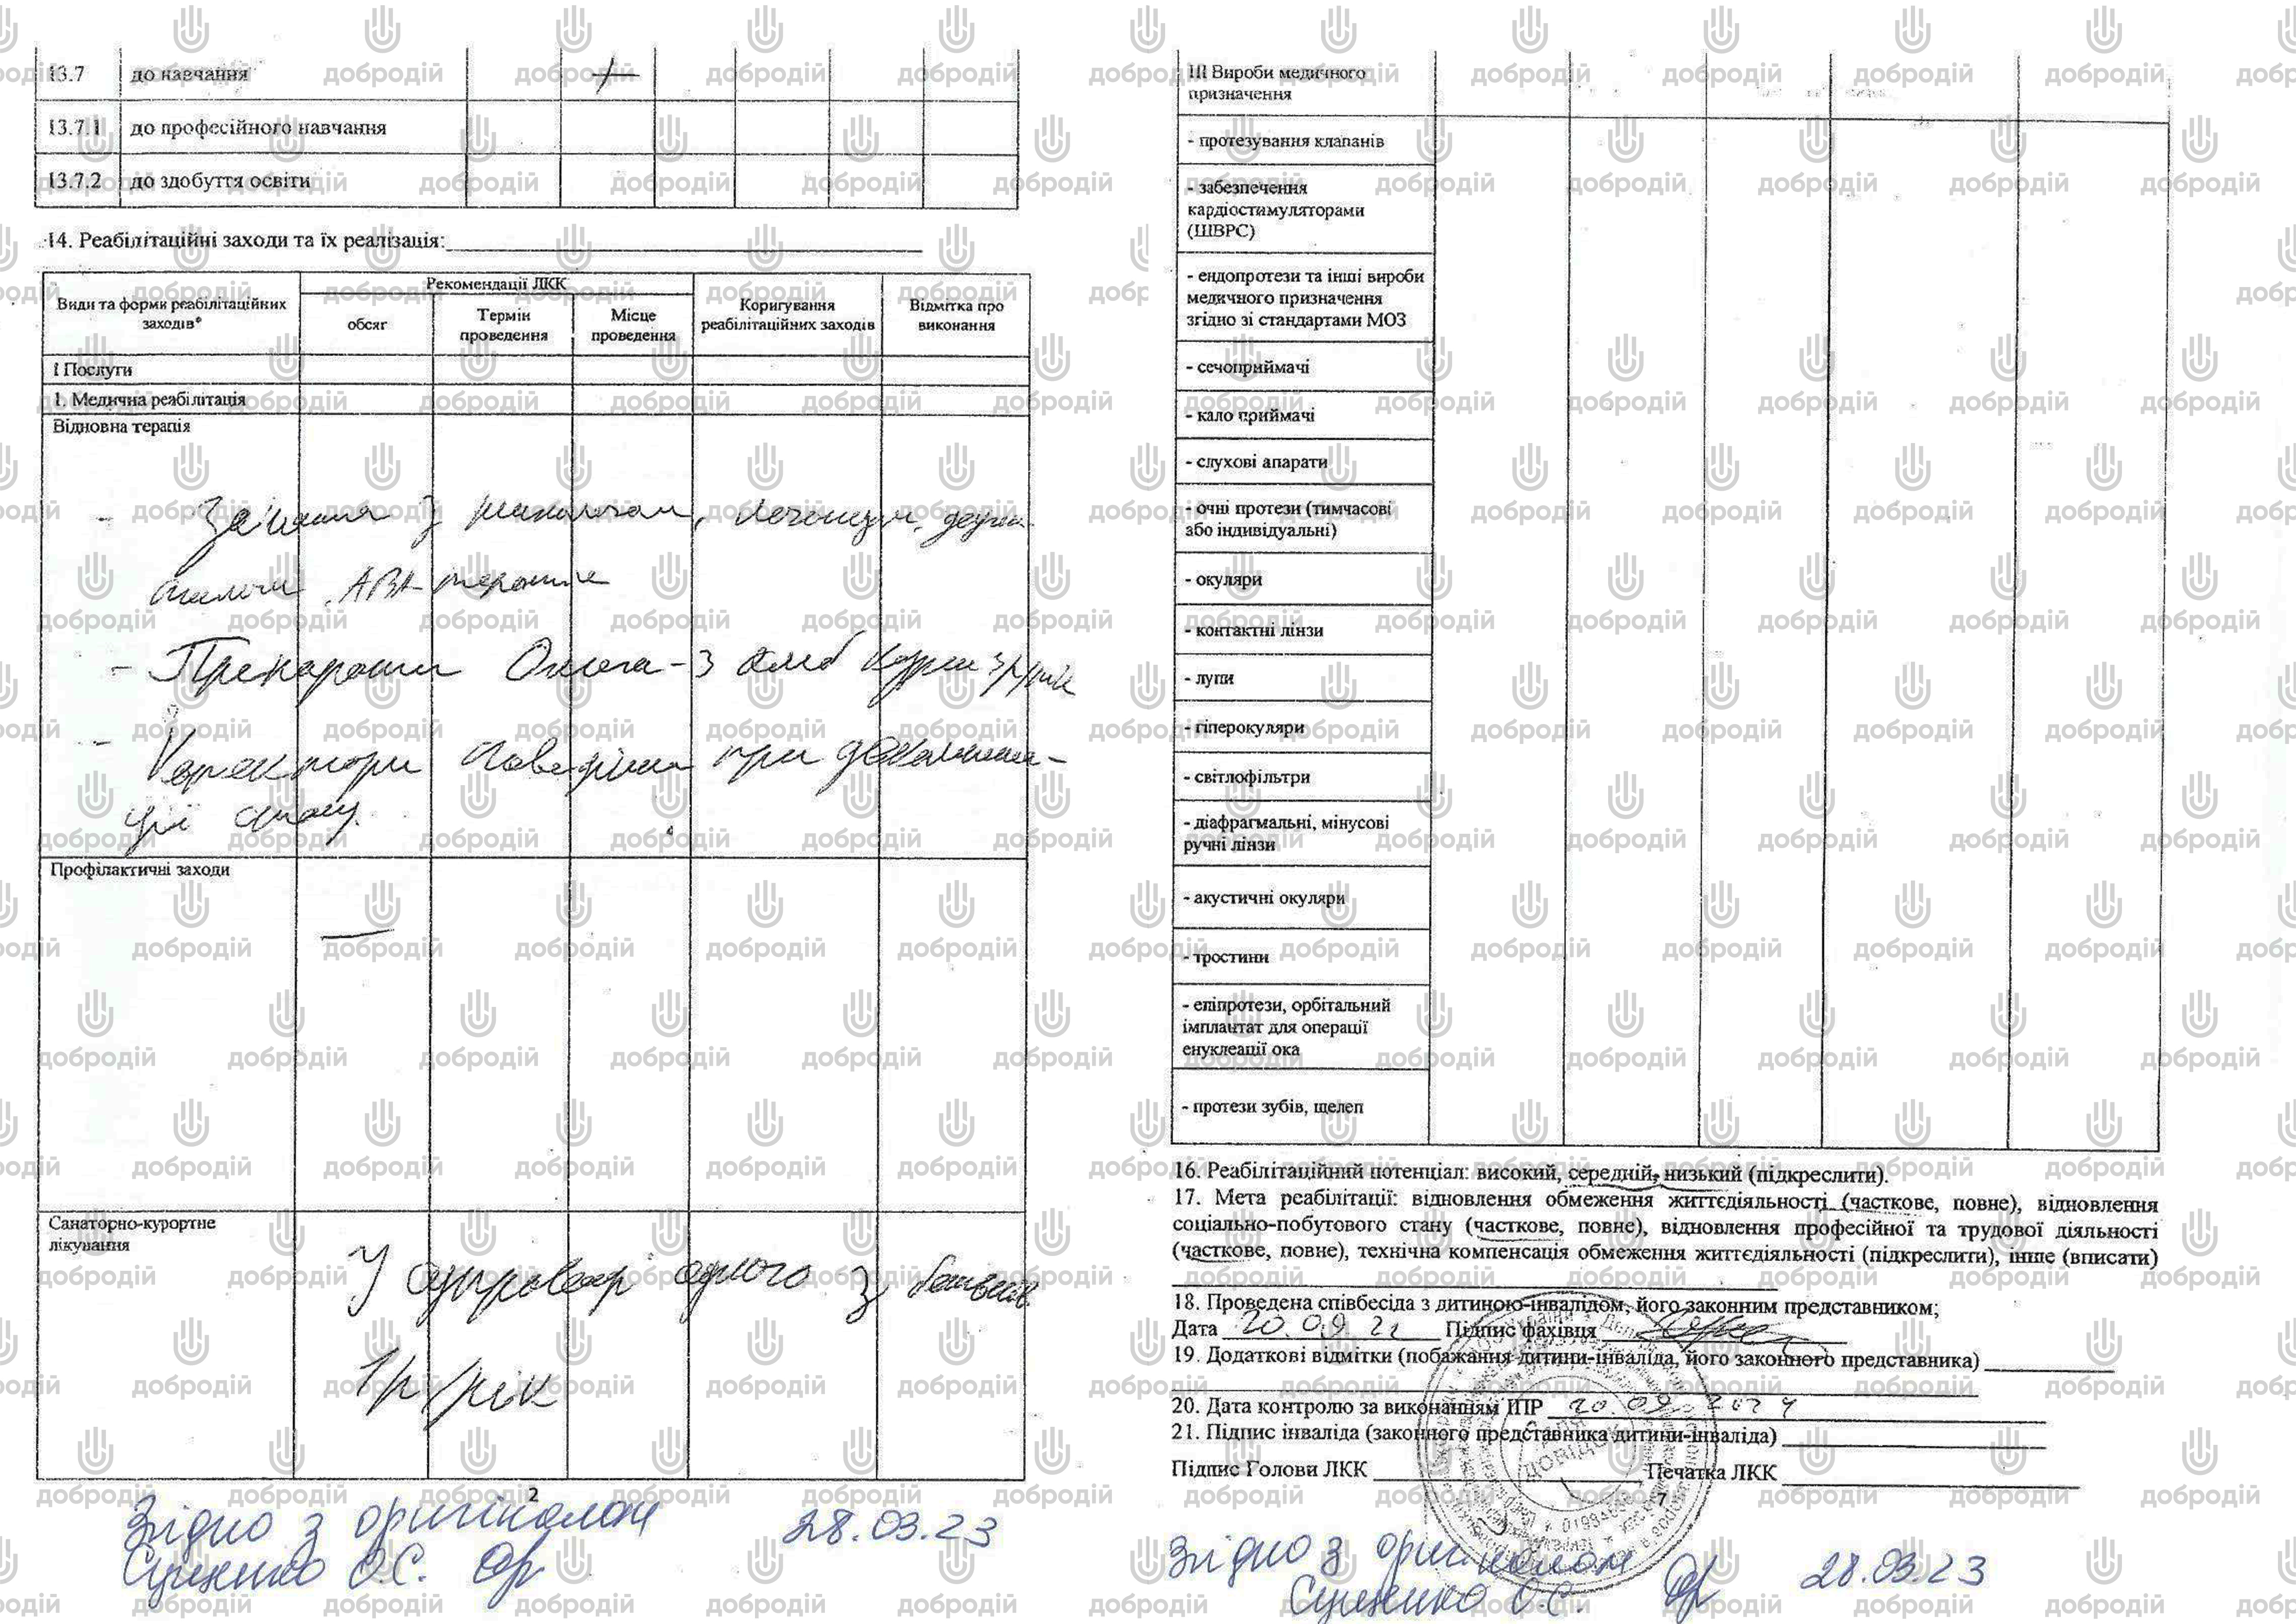 13.7 до навчання
13.7.1 до професійного навчання
13.7.2 до здобуття освіти
14. Реабілітаційні заходи та їх реалізація:
Види та форми реабілітаційних заходів*
Рекомендації ЛКК
обсяг
Термін проведення
Місце проведення
Коригування реабілітаційних заходів
Відмітка про виконання
І Послуги
1. Медична реабілітація
Відновна терапія
- Заняття з психологом, логопедом,
АВА-терапія
- Препарати Омега-3 курси
- Коректори поведінки при декомпенса-
ції стану.
Профілактичні заходи
—
Санаторно-курортне
лікування
У супроводі одного з батьків
1р/рік
2
Згідно з оригіналом 28.03.23
Сущенко О.С.
ІІІ Вироби медичного
призначення
- протезування клапанів
- забезпечення
кардіостимуляторами
(ШВРС)
- ендопротези та інші вироби
медичного призначення
згідно зі стандартами МОЗ
- сечоприймачі
- кало приймачі
- слухові апарати
- очні протези (тимчасові
або індивідуальні)
- окуляри
- контактні лінзи
- лупи
- гіперокуляри
- світлофільтри
- діафрагмальні, мінусові
ручні лінзи
- акустичні окуляри
- тростини
- епіпротези, орбітальний
імплантат для операції
енуклеації ока
- протези зубів, щелеп
16. Реабілітаційний потенціал: високий, середній, низький (підкреслити).
17. Мета реабілітації: відновлення обмеження життєдіяльності (часткове, повне), відновлення
соціально-побутового стану (часткове, повне), відновлення професійної та трудової діяльності
(часткове, повне), технічна компенсація обмеження життєдіяльності (підкреслити), інше (вписати)
18. Проведена співбесіда з дитиною-інвалідом, його законним представником;
Дата 20.09.22 Підпис фахівця
19. Додаткові відмітки (побажання дитини-інваліда, його законного представника)
20. Дата контролю за виконанням ІПР 20.09.2024
21. Підпис інваліда (законного представника дитини-інваліда)
Підпис Голови ЛКК Печатка ЛКК
ДЛЯ ДОВІДОК
7
Згідно з оригіналом
Сущенко О.С. 28.03.23
добродій